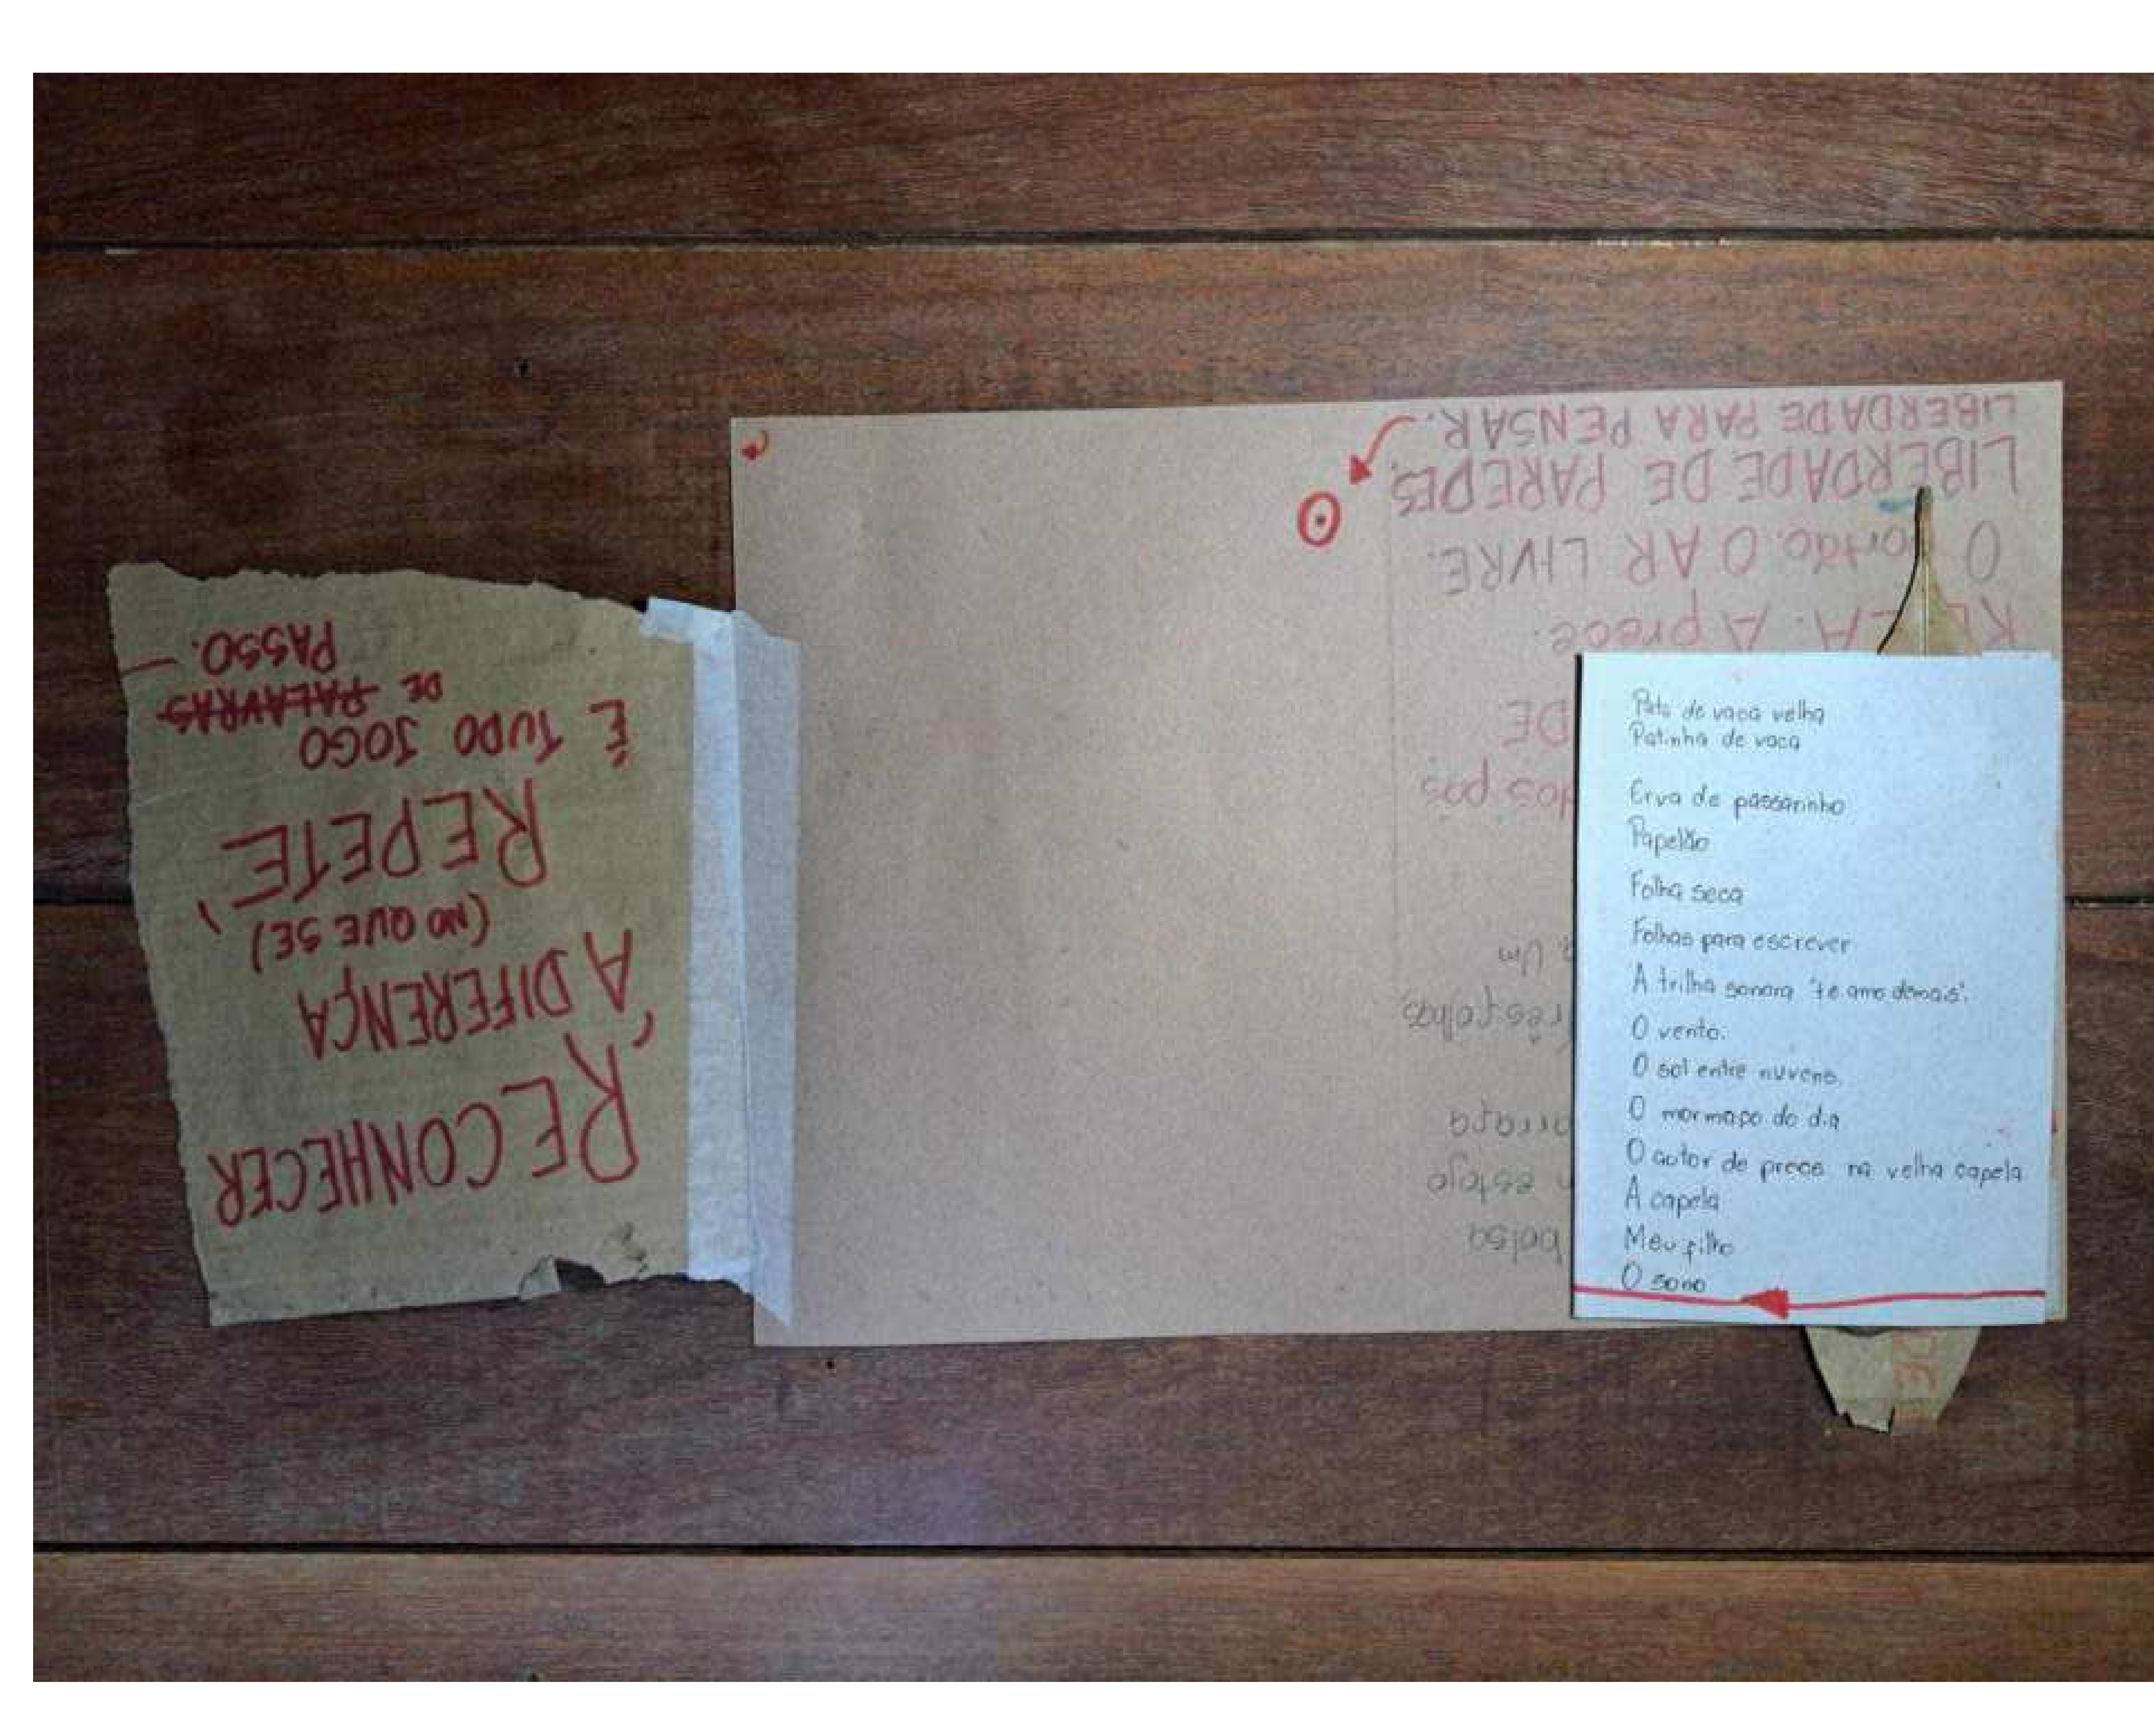 RECONHECER
A DIFERENÇA
(NO QUE SE)
REPETE
É TUDO JOGO
DE PALAVRAS
PASSO.
bolsa
estojo
Três folhas
Um
dos pás
DE
A prece.
O portão. O AR LIVRE.
LIBERDADE DE PAREDES.
LIBERDADE PARA PENSAR.
Pata de vaca velha
Patinha de vaca
Erva de passarinho
Papelão
Folha seca
Folhas para escrever
A trilha sonora "te amo demais".
O vento.
O sol entre nuvens.
O mormaço do dia
O autor de prece na velha capela
A capela
Meu filho
O sono